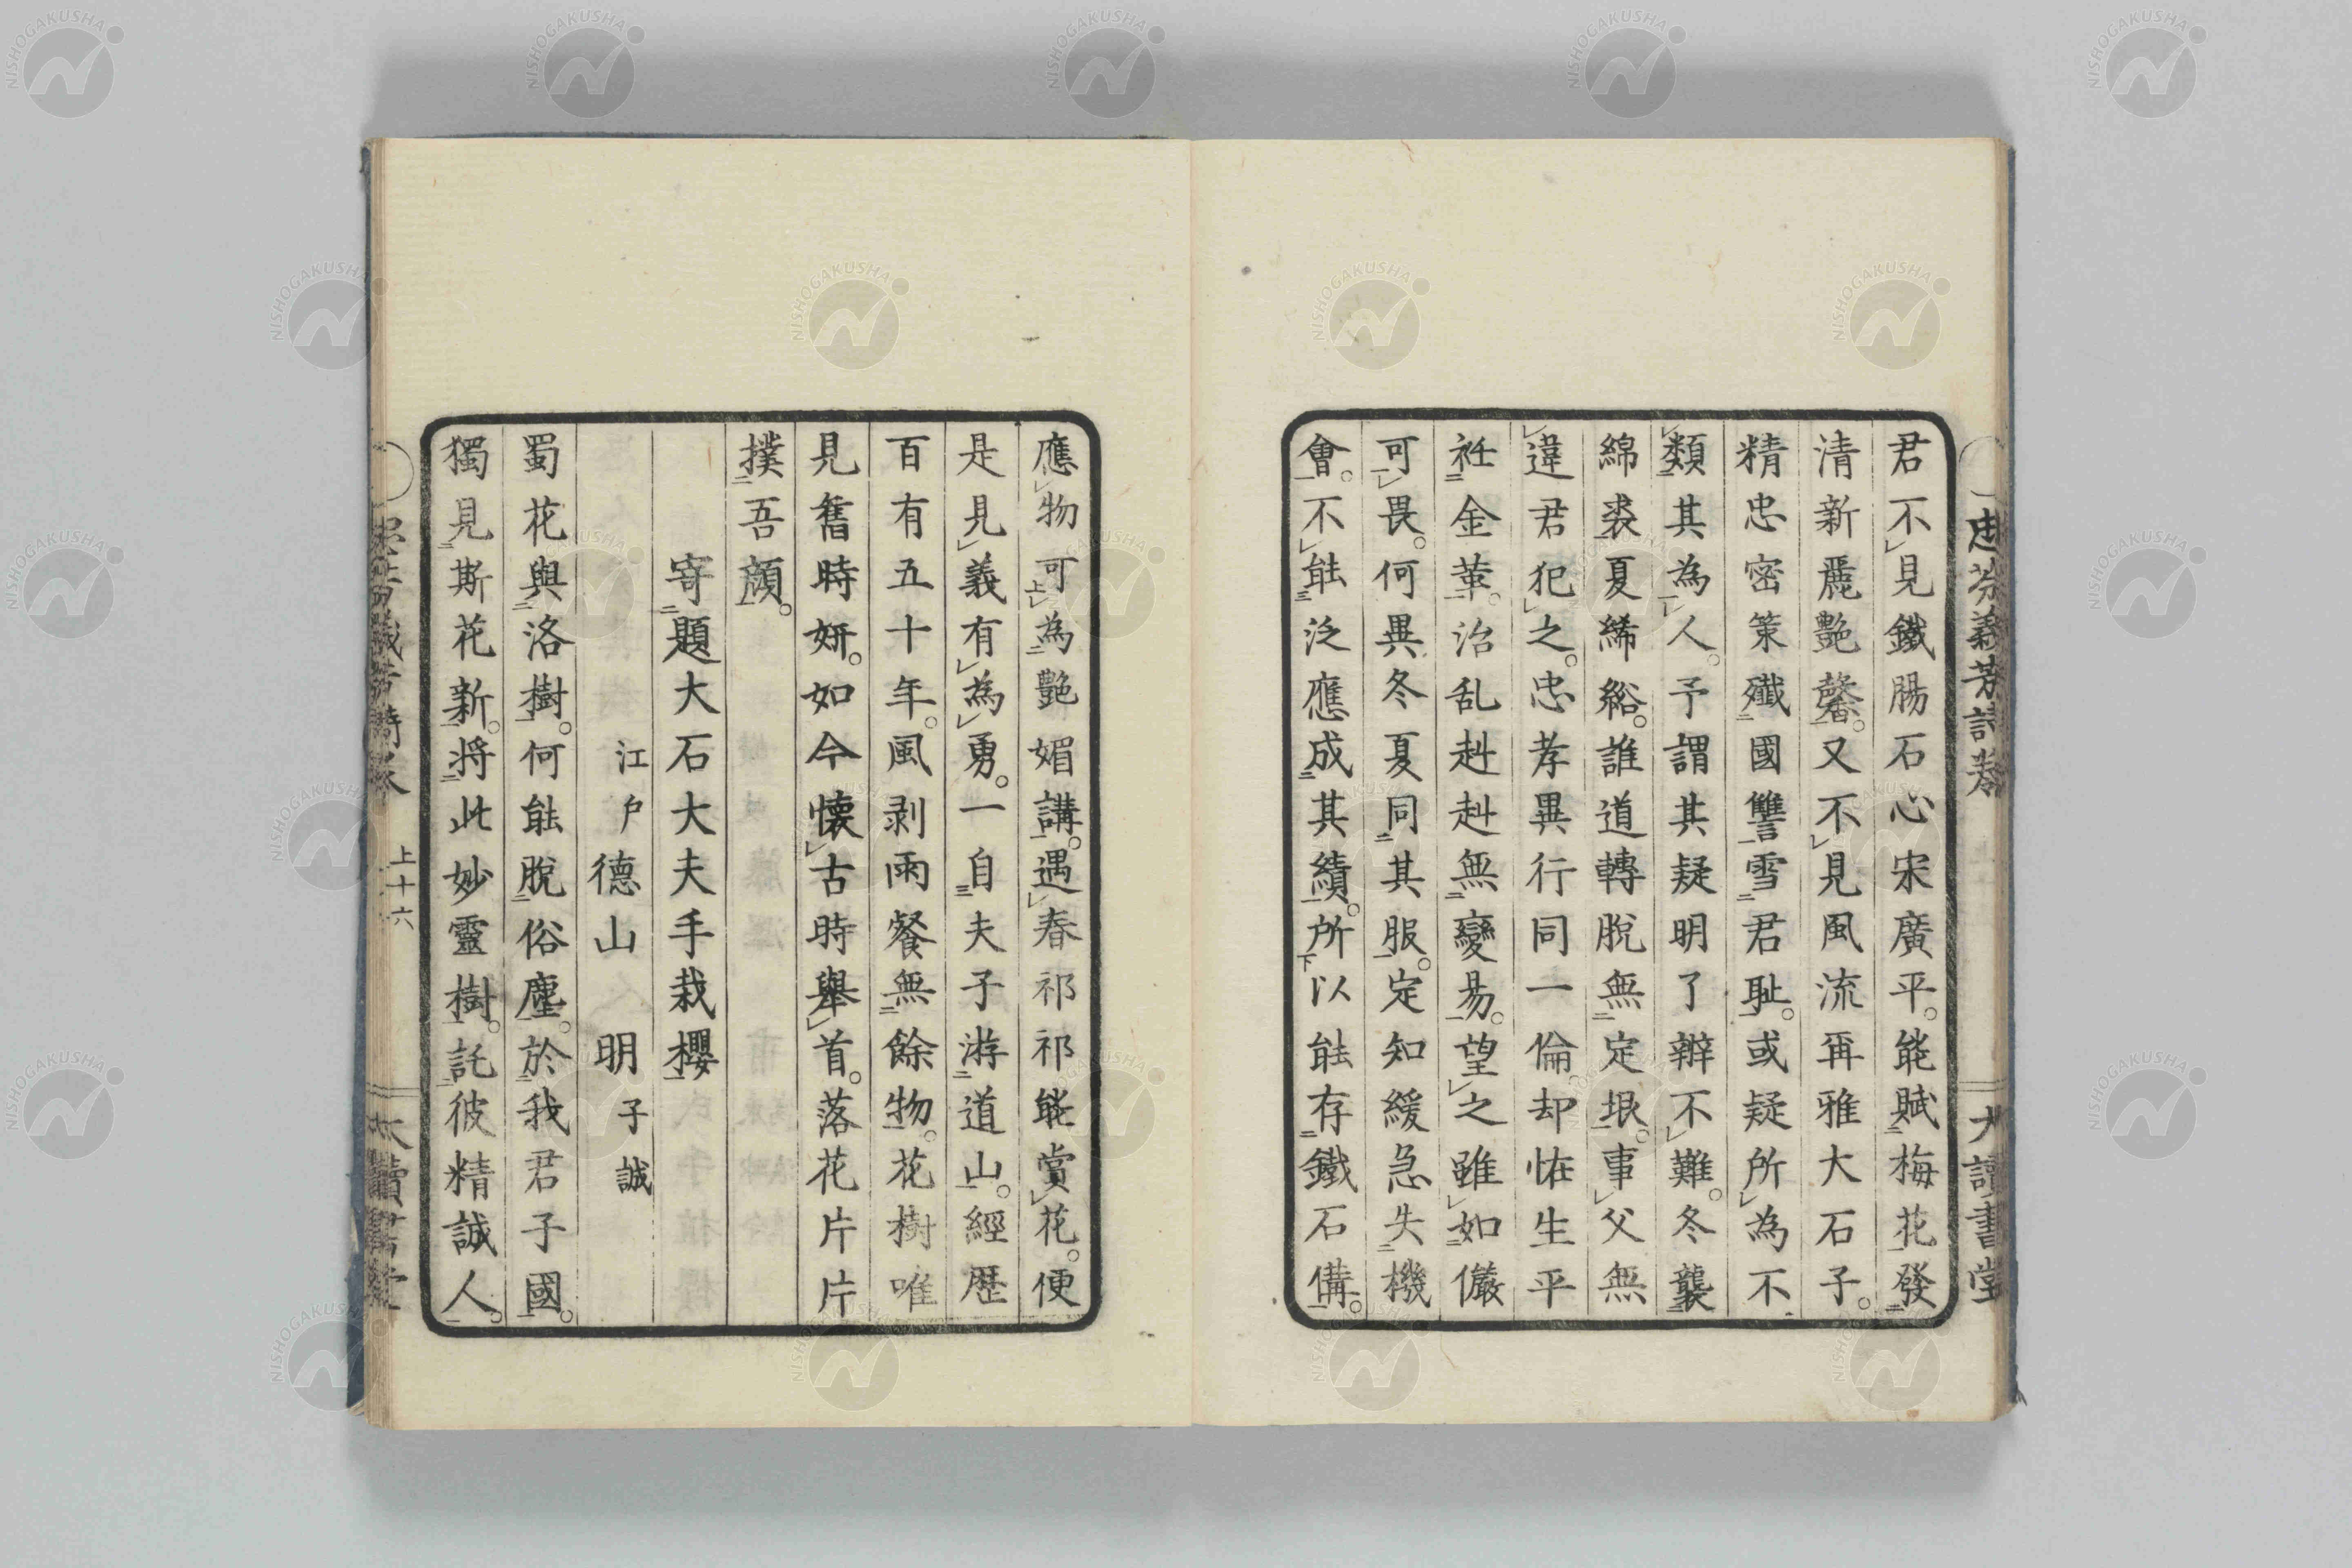 忠芬義芳詩巻
大讀書堂
君不見鐵腸石心宋廣平。能賦梅花發
清新麗艷馨。又不見風流再雅大石子。
精忠密策殲國讐雪君耻。或疑所為不
類其為人。予謂其疑明了辨不難。冬襲
綿裘夏絺綌。誰道轉脫無定垠。事父無
違君犯之。忠孝異行同一倫却恠生平
衽金革。治乱赳赳無變易。望之雖如儼
可畏。何異冬夏同其服。定知緩急失機
會。不能泛應成其績。所以能存鐵石備。
應物可為艷媚講。遇春祁祁能賞花。便
是見義有為勇。一自夫子游道山。經歷
百有五十年。風剥雨餐無餘物。花樹唯
見舊時妍。如今懐古時擧首。落花片片
撲吾顔。
寄題大石大夫手栽櫻
江戸 德山 明 子誠
蜀花與洛樹。何能脫俗塵。於我君子國。
獨見斯花新。將此妙靈樹。託彼精誠人。
上十六
NISHOGAKUSHA